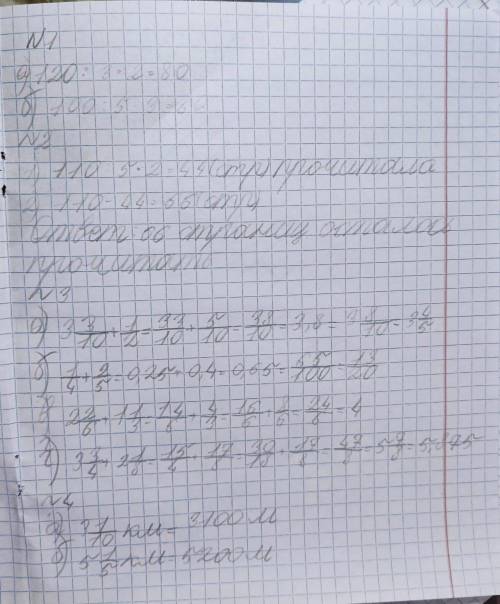 N1
а) 120 : 3 · 2 = 80
б) 100 : 5 · 3 = 60
N2
1) 110 : 5 · 2 = 44 (стр) прочитала
2) 110 - 44 = 66 (стр)
Ответ 66 страниц осталось
прочитать
N3
а) 3 3/10 + 1/2 = 33/10 + 5/10 = 38/10 = 3,8 = 3 8/10 = 3 4/5
б) 1/4 + 2/5 = 0,25 + 0,4 = 0,65 = 65/100 = 13/20
в) 2 2/6 + 1 1/3 = 14/6 + 4/3 =
г) 3 3/4 + 2 1/8 = 15/4 + 17/8 = 30/8 + 17/8 = 47/8 = 5 7/8 = 5,875
N4
а) 3 1/10 км = 3100 м
б) 5 1/5 км = 5200 м